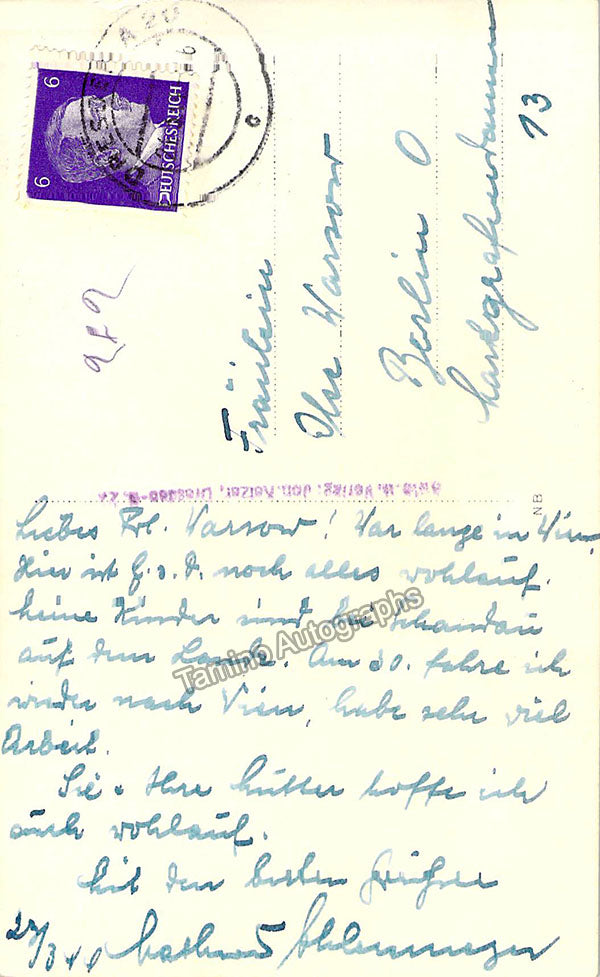 6
6
DEUTSCHES REICH
DRESDEN A 20
c
Fräulein
Ilse Warsow
Berlin O
Markgrafendamm
13
Foto u. Verlag: Joh. Dresden-A. 24
NB
Liebes Frl. Warsow! War lange in Wien.
Hier ist G. s. D. noch alles wohlauf.
Meine Kinder sind bei Schandau
auf dem Lande. Am 30. fahre ich
wieder nach Wien, habe sehr viel
Arbeit.
Sie + Ihre Mutter hoffe ich
auch wohlauf.
Mit den besten Grüßen
27/3 44
Tamino Autographs